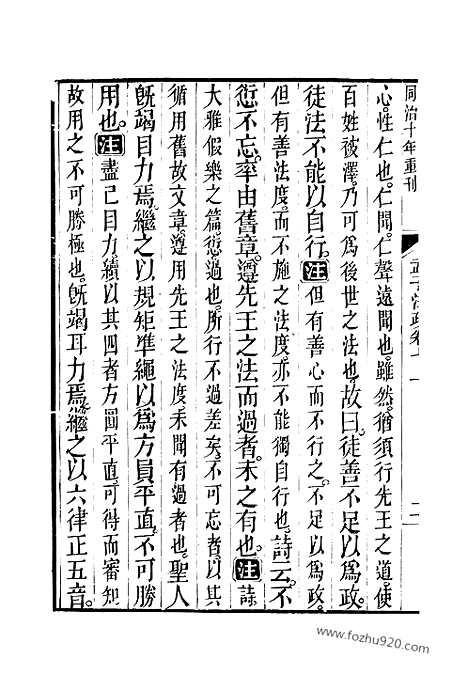 同治十年重刊
心性仁也。仁聞。仁聲遠聞也。雖然。猶須行先王之道。使
百姓被澤。乃可爲後世之法也。故曰。徒善不足以爲政。
徒法不能以自行。注但有善心而不行之。不足以爲政。
但有善法度。而不施之法度。亦不能獨自行也。詩云。不
愆不忘。率由舊章。遵先王之法而過者。未之有也。注詩
大雅假樂之篇。愆過也。所行不過差矣。不可忘者。以其
循用舊故文章。遵用先王之法度。未聞有過者也。聖人
旣竭目力焉。繼之以規矩準繩以爲方員平直。不可勝
用也。注盡己目力。續以其四者。方圓平直。可得而審知
故用之不可勝極也。旣竭耳力焉。繼之以六律正五音。
www.fozhu920.com